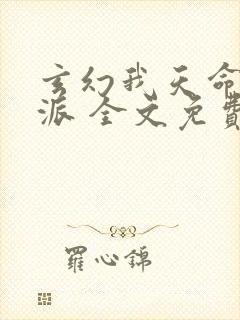 玄幻我天命
派 全文免費
羅心錦